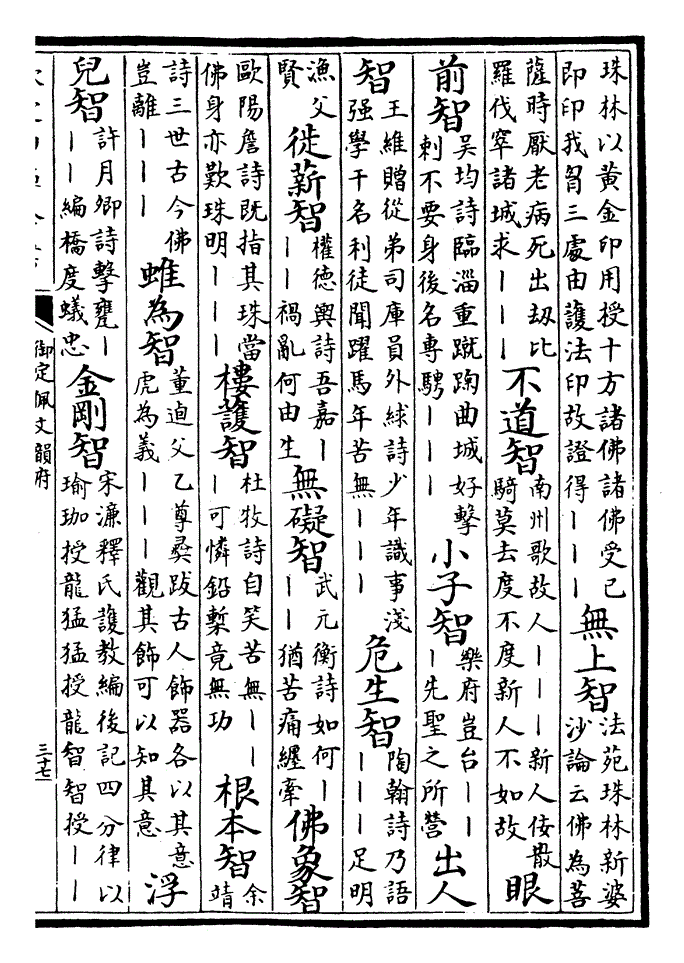 珠林以黃金印用授十方諸佛諸佛受已
即印我胷三處由護法印故證得｜｜｜
無上智
法苑珠林新婆
沙論云佛為菩
薩時厭老病死出刼比
羅伐窣諸城求｜｜｜
不道智
南州歌故人｜｜｜新人佞散
騎莫去度不度新人不如故
眼
前智
吳均詩臨淄重蹴踘曲城好擊
刺不要身後名專騁｜｜｜
小子智
樂府豈台｜｜
｜先聖之所營
出人
智
王維贈從弟司庫員外絿詩少年識事淺
强學干名利徒聞躍馬年苦無｜｜｜
危生智
陶翰詩乃語
｜｜｜足明
漁父
賢
徙薪智
權德輿詩吾嘉｜
｜｜禍亂何由生
無礙智
武元衡詩如何｜
｜｜猶苦痛纏牽
佛象智
歐陽詹詩既指其珠當
佛身亦歎珠明｜｜｜
樓護智
杜牧詩自笑苦無｜｜
｜可憐鉛槧竟無功
根本智
余
靖
詩三世古今佛
豈離｜｜｜
蜼為智
董逌父乙尊彛跋古人飾器各以其意
虎為義｜｜｜觀其飾可以知其意
浮
兒智
許月卿詩擊甕｜
｜｜編橋度蟻忠
金剛智
宋濂釋氏護教編後記四分律以
瑜珈授龍猛猛授龍智智授｜｜
御定佩文韻府
三十七